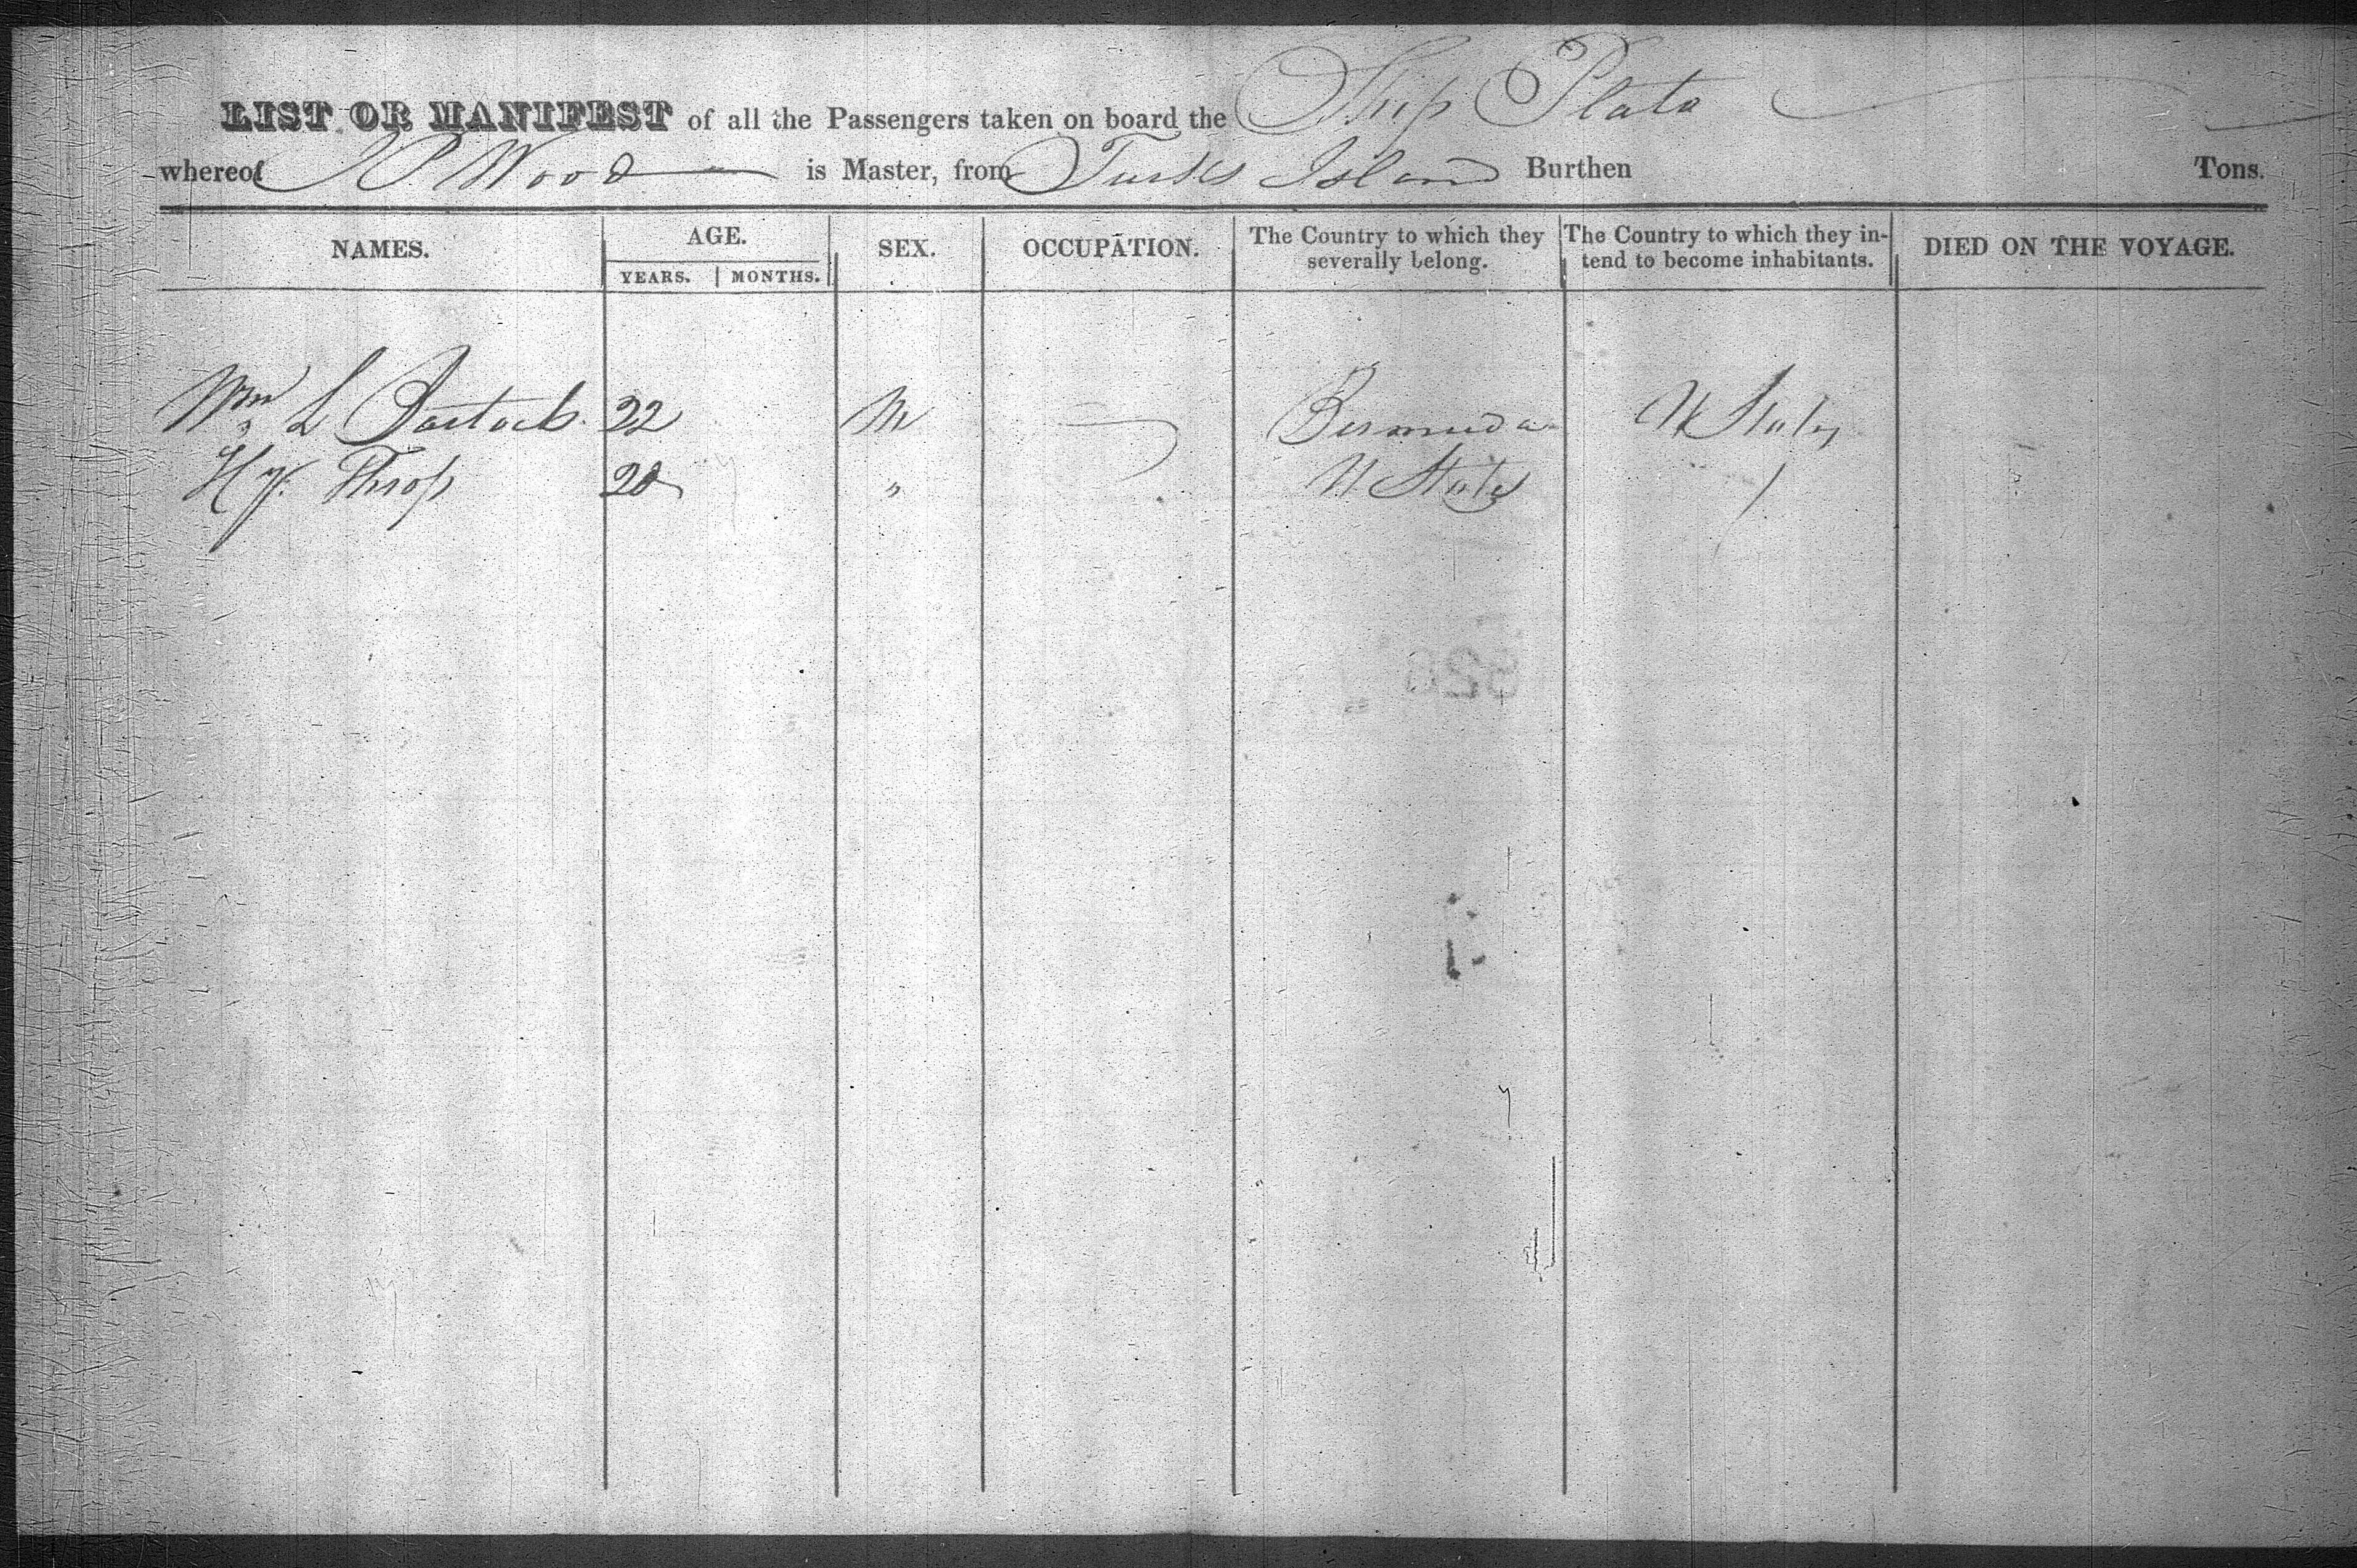 LIST OR MANIFEST of all the Passengers taken on board the Ship Plato
whereof P Wood is Master, from Turks Island Burthen Tons.
NAMES. AGE. SEX. OCCUPATION. The Country to which they severally belong. The Country to which they intend to become inhabitants. DIED ON THE VOYAGE.
YEARS. MONTHS.
Wm L 22 M Bermuda U States
Hy. Throp 20 " U States